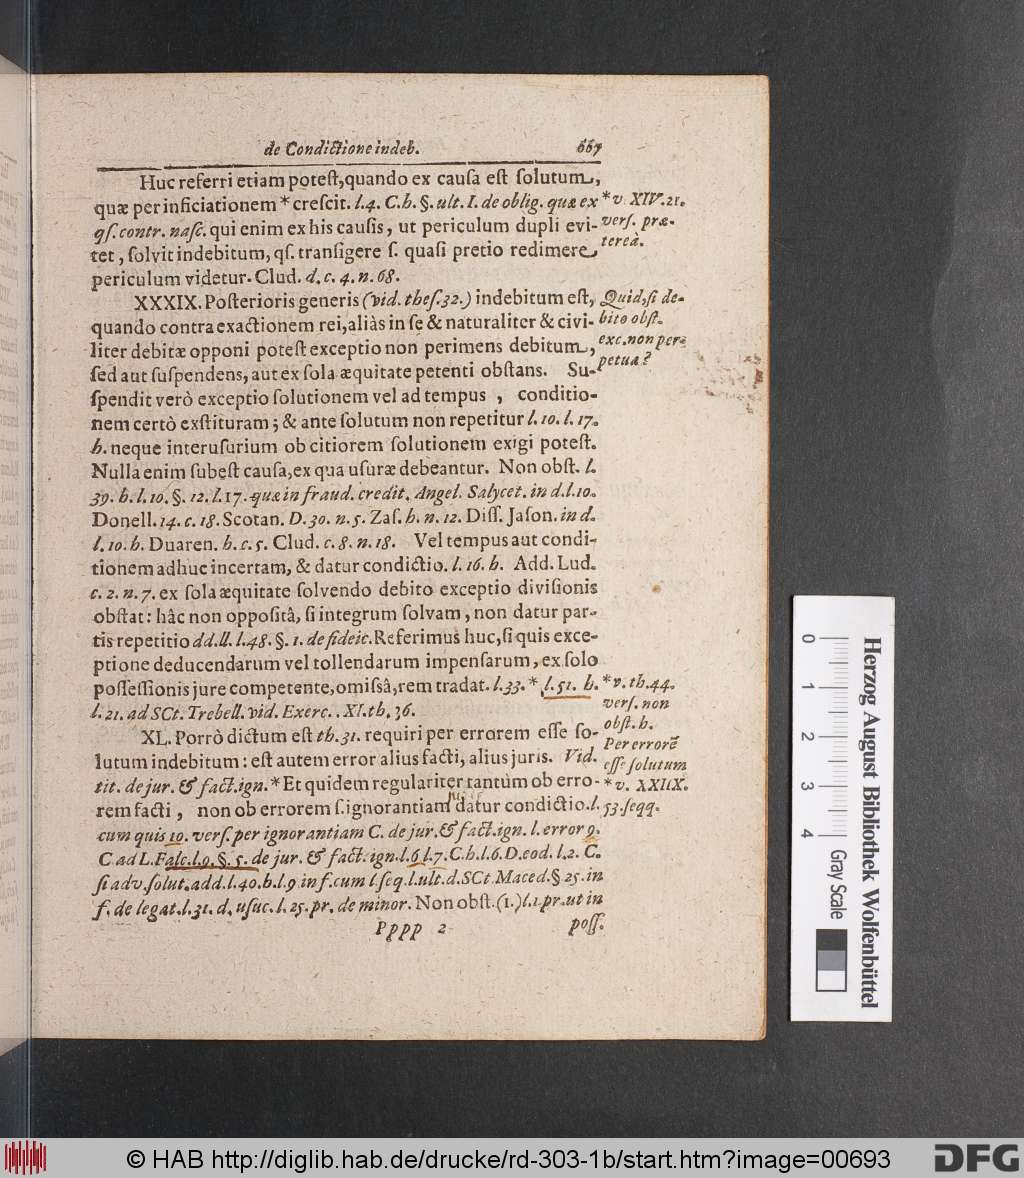 de Condictione indeb. 667
Huc referri etiam potest, quando ex causa est solutum,
quæ per inficiationem * crescit. l. 4. C. h. §. ult. I. de oblig. quæ ex
* v. XIV. 21.
qs. contr. nasc. qui enim ex his causis, ut periculum dupli evi-
vers. præ-
tet, solvit indebitum, qs. transigere s. quasi pretio redimere
tereà.
periculum videtur. Clud. d. c. 4. n. 68.
XXXIX. Posterioris generis (vid. thes. 32.) indebitum est,
Quid, si de-
quando contra exactionem rei, aliàs in se & naturaliter & civi-
bito obst.
liter debitæ opponi potest exceptio non perimens debitum,
exc. non per-
sed aut suspendens, aut ex sola æquitate petenti obstans. Su-
petua?
spendit verò exceptio solutionem vel ad tempus, conditio-
nem certò exstituram; & ante solutum non repetitur l. 10. l. 17.
h. neque interusurium ob citiorem solutionem exigi potest.
Nulla enim subest causa, ex qua usuræ debeantur. Non obst. l.
39. h. l. 10. §. 12. l. 17. quæ in fraud. credit. Angel. Salycet. in d. l. 10.
Donell. 14. c. 18. Scotan. D. 30. n. 5. Zas. h. n. 12. Diss. Jason. in d.
l. 10. h. Duaren. h. c. 5. Clud. c. 8. n. 18. Vel tempus aut condi-
tionem adhuc incertam, & datur condictio. l. 16. h. Add. Lud.
c. 2. n. 7. ex sola æquitate solvendo debito exceptio divisionis
obstat: hâc non oppositâ, si integrum solvam, non datur par-
tis repetitio dd. ll. l. 48. §. 1. de fideic. Referimus huc, si quis exce-
ptione deducendarum vel tollendarum impensarum, ex solo
possessionis jure competente, omissâ, rem tradat. l. 33. * l. 51. h.
* v. th. 44.
l. 21. ad SCt. Trebell. vid. Exerc. . XI. th. 36.
vers. non
obst. h.
XL. Porrò dictum est th. 31. requiri per errorem esse so-
Per errorē
lutum indebitum: est autem error alius facti, alius juris. Vid.
esse solutum
tit. de jur. & fact. ign. * Et quidem regulariter tantùm ob erro-
* v. XXIIX.
juris
rem facti, non ob errorem s. ignorantiam datur condictio. l.
53. seqq.
cum quis 10. vers. per ignorantiam C. de jur. & fact. ign. l. error 9.
C. ad L. Falc. l. 9. §. 5. de jur. & fact. ign. l. 6 l. 7. C. h. l. 6. D. eod. l. 2. C.
si adv. solut. add. l. 40. h. l. 9 in f. cum l. seq. l. ult. d. SCt Maced. § 25. in
f. de legat. l. 31. d. usuc. l. 25. pr. de minor. Non obst. (1.) l. 1. pr. ut in
Pppp 2 poss.
0 1 2 3 4
Gray Scale
Herzog August Bibliothek Wolfenbüttel
© HAB http://diglib.hab.de/drucke/rd-303-1b/start.htm?image=00693
DFG